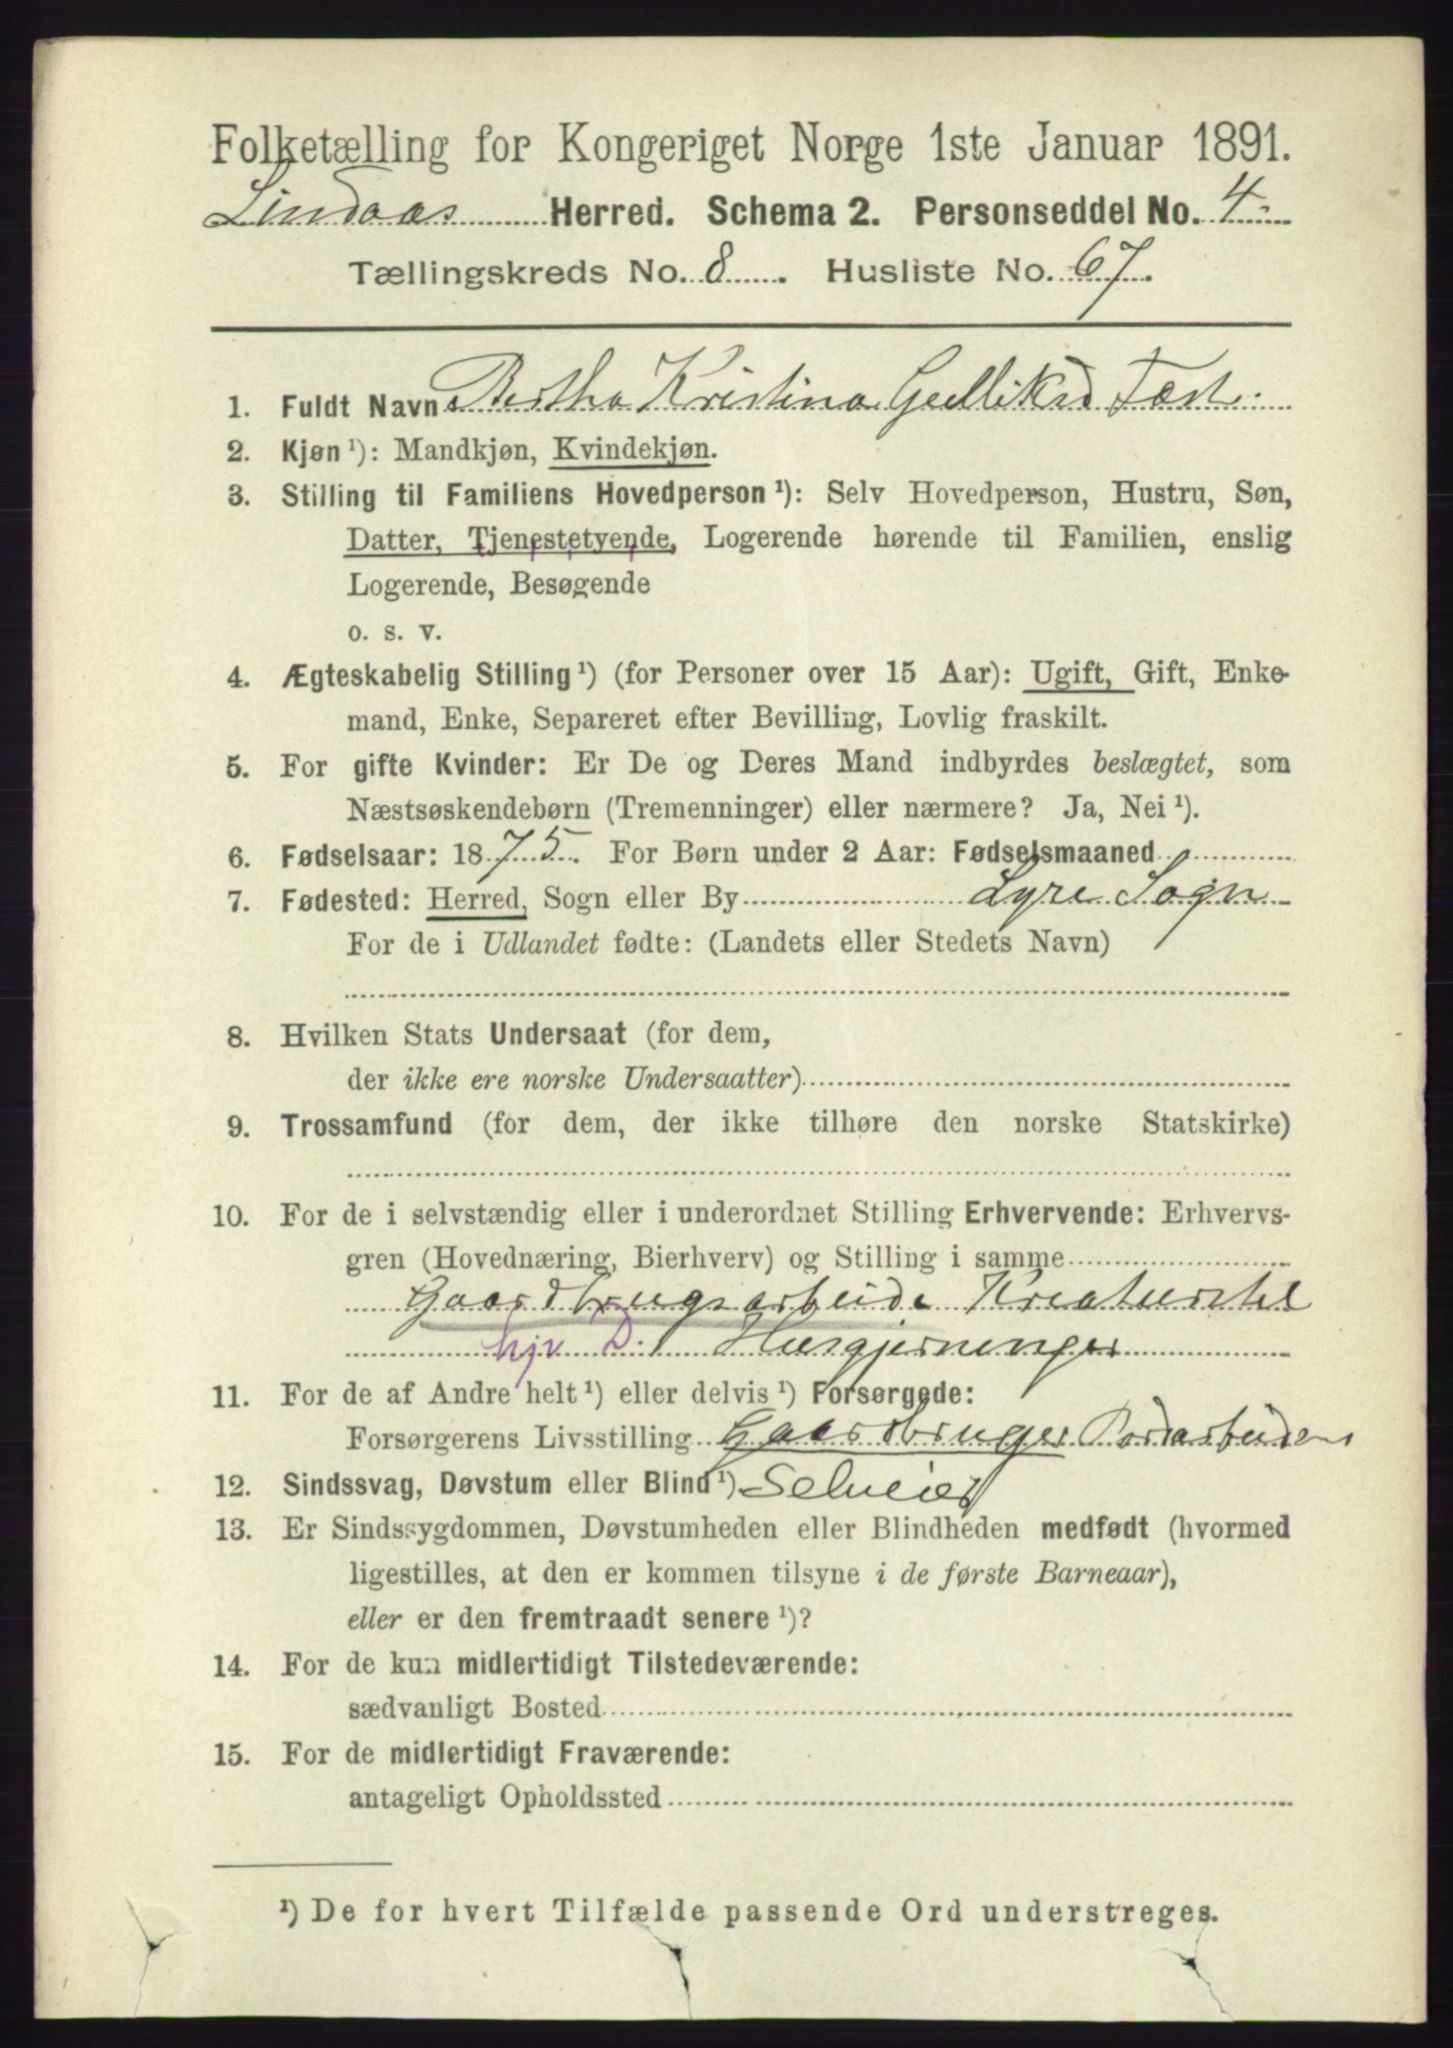 Folketælling for Kongeriget Norge 1ste Januar 1891.
Lindaas Herred. Schema 2. Personseddel No. 4
Tællingskreds No. 8. Husliste No. 67.
1. Fuldt Navn Bertha Kristina Gulliksd Fæste
2. Kjøn ¹): Mandkjøn, Kvindekjøn.
3. Stilling til Familiens Hovedperson ¹): Selv Hovedperson, Hustru, Søn,
Datter, Tjenestetyende, Logerende hørende til Familien, enslig
Logerende, Besøgende
o. s. v.
4. Ægteskabelig Stilling ¹) (for Personer over 15 Aar): Ugift, Gift, Enke-
mand, Enke, Separeret efter Bevilling, Lovlig fraskilt.
5. For gifte Kvinder: Er De og Deres Mand indbyrdes beslægtet, som
Næstsøskendebørn (Tremenninger) eller nærmere? Ja, Nei ¹).
6. Fødselsaar: 1875. For Børn under 2 Aar: Fødselsmaaned
7. Fødested: Herred, Sogn eller By Lyre Sogn
For de i Udlandet fødte: (Landets eller Stedets Navn)
8. Hvilken Stats Undersaat (for dem,
der ikke ere norske Undersaatter)
9. Trossamfund (for dem, der ikke tilhøre den norske Statskirke)
10. For de i selvstændig eller i underordnet Stilling Erhvervende: Erhvervs-
gren (Hovednæring, Bierhverv) og Stilling i samme
Gaardbrugsarbeide Kreaturstel
hjv D. Husgjerninger
11. For de af Andre helt ¹) eller delvis ¹) Forsørgede:
Forsørgerens Livsstilling Gaardbruger
12. Sindssvag, Døvstum eller Blind ¹) Selveier
13. Er Sindssygdommen, Døvstumheden eller Blindheden medfødt (hvormed
ligestilles, at den er kommen tilsyne i de første Barneaar),
eller er den fremtraadt senere ¹)?
14. For de kun midlertidigt Tilstedeværende:
sædvanligt Bosted
15. For de midlertidigt Fraværende:
antageligt Opholdssted
¹) De for hvert Tilfælde passende Ord understreges.